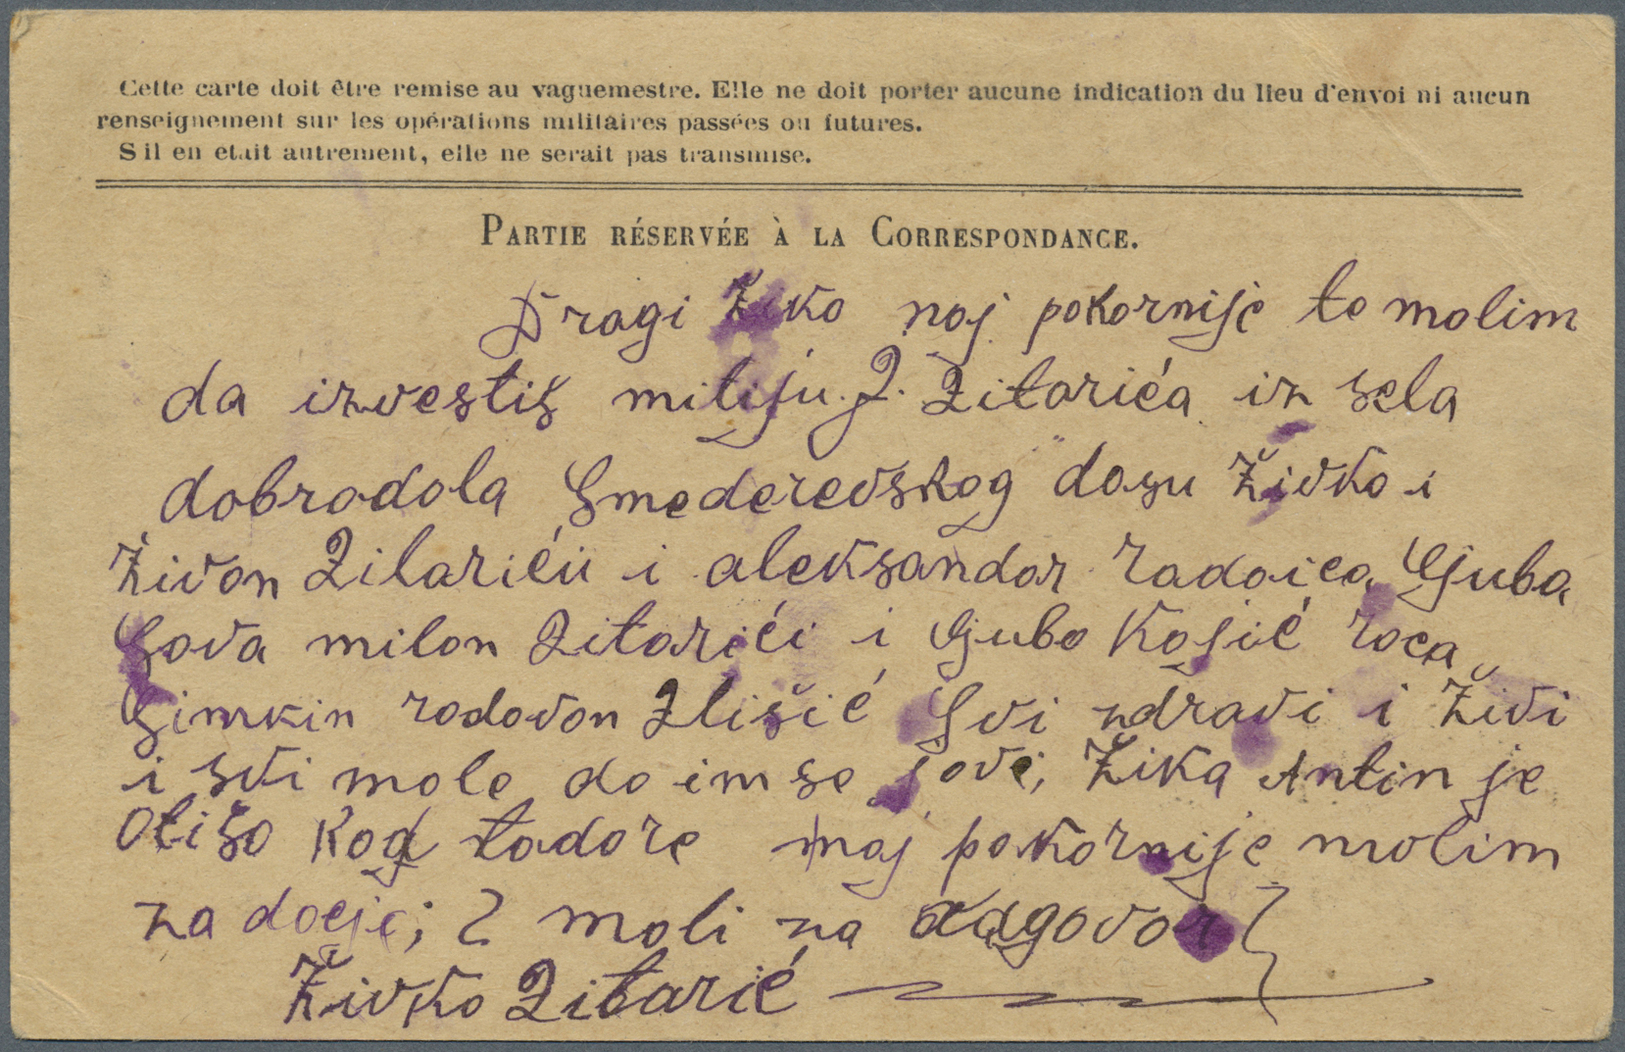 Cette carte doit être remise au vaguemestre. Elle ne doit porter aucune indication du lieu d'envoi ni aucun
renseignement sur les opérations militaires passées ou futures.
S il en etait autrement, elle ne serait pas transmise.
PARTIE RÉSERVÉE À LA CORRESPONDANCE.
Dragi Žiko naj pokornije te molim
da izvestiš
da sela
dobrodola Smederevskog dasu Živko i
Živan i aleksandar radoica Ljuba
Sava milan i Ljuba Kosić
radovan Svi zdravi i živi
i svi mole da im se javi, Žika Antin je
Otišo kod todore naj pokornije molim
za moli za odgovor
Živko